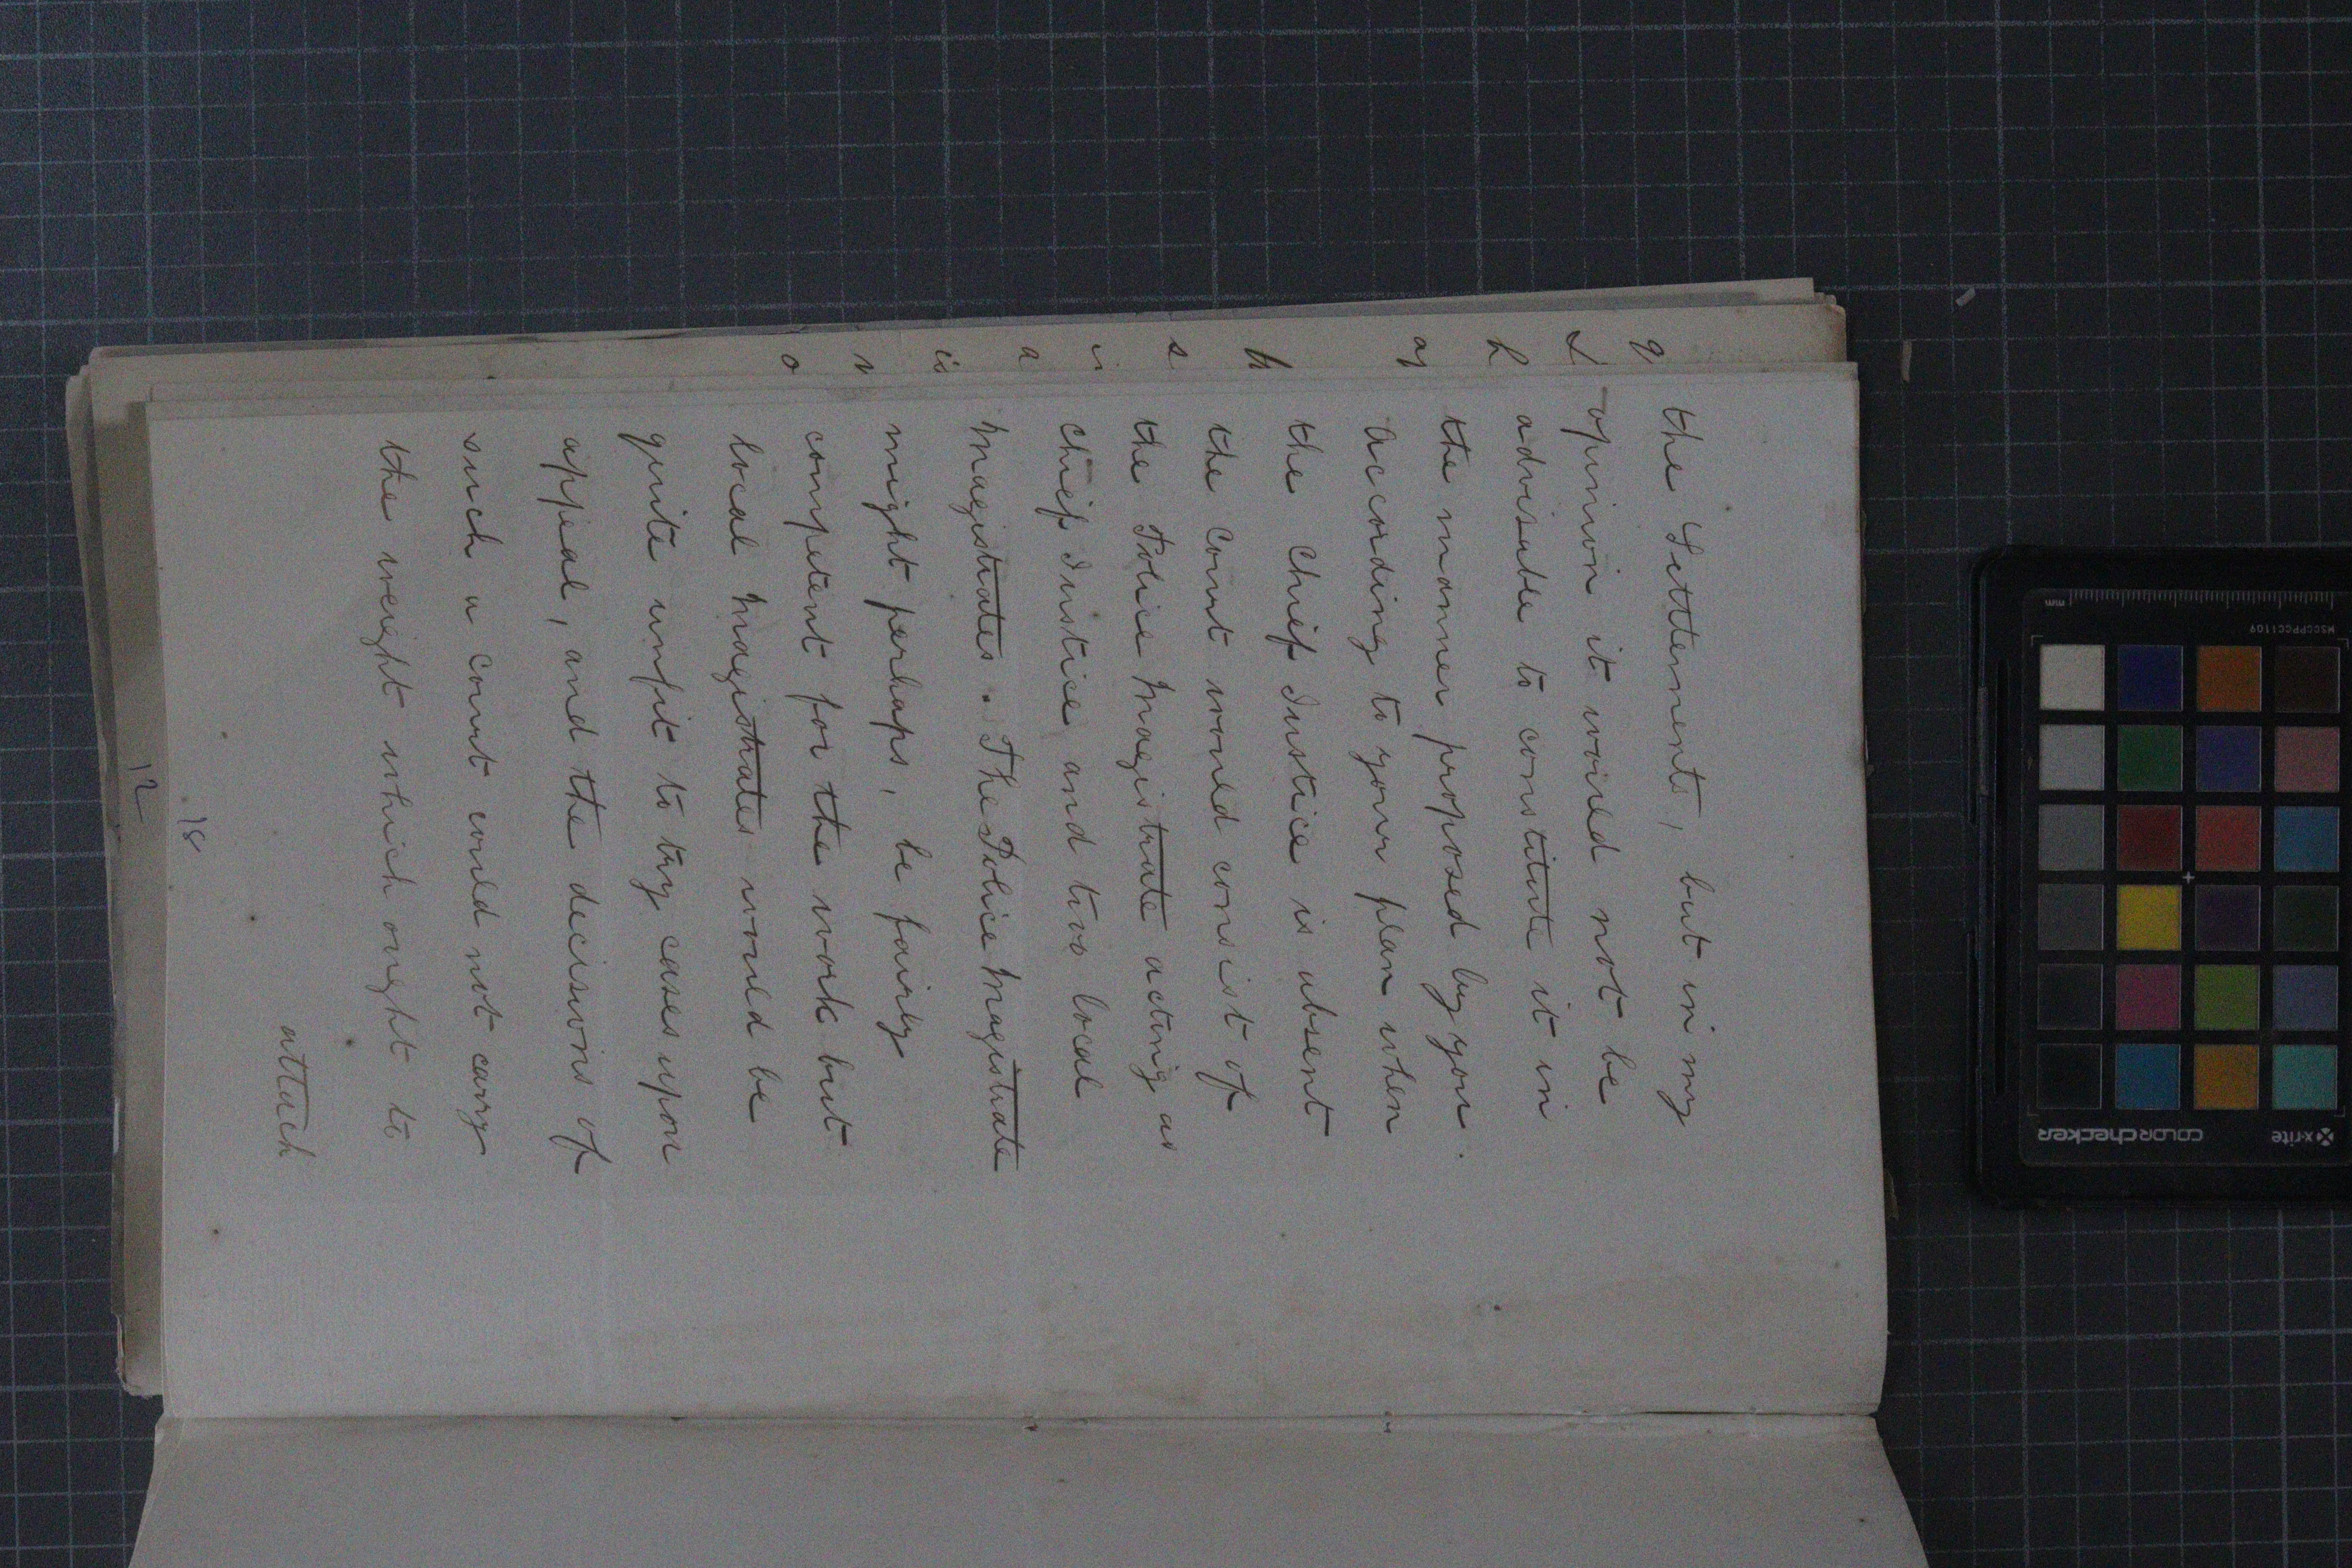 the Settlements, but in my
opinion it would not be
advisable to constitute it in
the manner proposed by you.
According to your plan when
the Chief Justice is absent
the Court would consist of
the Police Magistrate acting as
Chief Justice and two local
Magistrates. The Police Magistrate
might perhaps, be fairly
competent for the work but
local Magistrates would be
quite unfit to try cases upon
appeal, and the decisions of
such a court could not carry
the weight which ought to
attach
18
12
x-rite
colorchecker
MSCCPPCC1109
mm